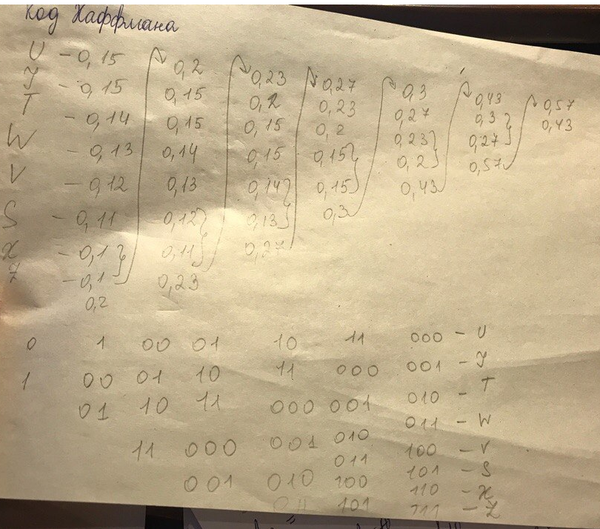 Код Хаффмана
U - 0,15 0,2 0,23 0,27 0,3 0,43 0,57
Y - 0,15 0,15 0,2 0,23 0,27 0,3 0,43
T - 0,14 0,15 0,15 0,2 0,23 0,27
W - 0,13 0,14 0,15 0,15 0,2 0,57
V - 0,12 0,13 0,14 0,15 0,43
S - 0,11 0,12 0,13 0,3
X - 0,1 0,11 0,27
Z - 0,1 0,23
0,2
0 1 00 01 10 11 000 - U
1 00 01 10 11 000 001 - Y
01 10 11 000 001 010 - T
11 000 001 010 011 - W
001 010 011 100 - V
100 101 - S
101 110 - X
111 - Z